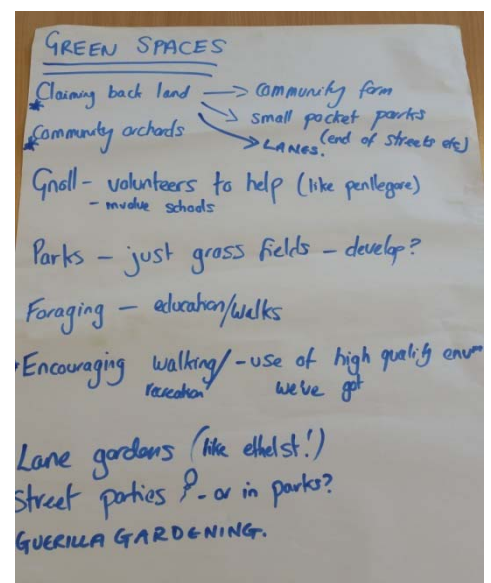 GREEN SPACES
* Claiming back land → Community farm
→ small pocket parks
(end of streets etc)
* Community orchards → LANES.
Gnoll - volunteers to help (like penllegare)
- involve schools
Parks - just grass fields - develop?
Foraging - education/walks
* Encouraging walking/ - use of high quality envm
recreation we've got
Lane gardens (like ethel st!)
Street parties ? - or in parks?
GUERILLA GARDENING.